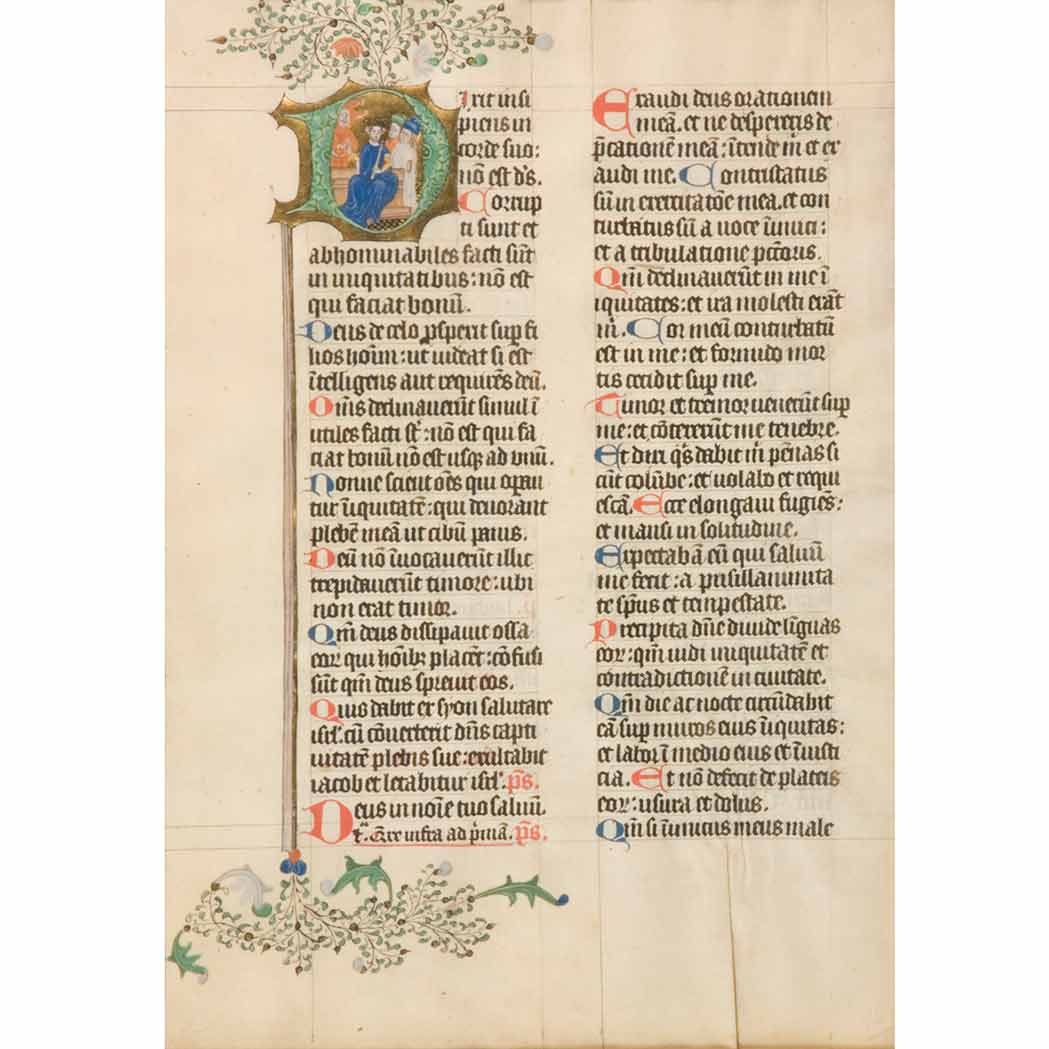 Dixit insi
piens in
corde suo:
nō est d̄s.
Corrup
ti sunt et
abhominabiles facti sūt
in iniquitatibus: nō est
qui faciat bonū.
Deus de celo ꝓspexit sup̄ fi
lios hoīm: ut uideat si est
ītelligens aut requirēs deū.
Om̄s declinauerūt simul ī
utiles facti st̄: nō est qui fa
ciat bonū nō est usq̄ ad unū.
Nonne scient om̄s qui operan
tur īiquitatē: qui deuorant
plebē meā ut cibū panis.
Deū nō īuocauerūt illic
trepidauerūt timore: ubi
non erat timor.
Qm̄ deus dissipauit ossa
eoꝝ qui hoīb; placēt: cōfusi
sūt qm̄ deus spreuit eos.
Quis dabit ex syon salutare
isr̄l: cū cōuerterit dn̄s capti
uitatē plebis sue: exultabit
iacob et letabitur isr̄l. p̄s.
Deus in noīe tuo saluū.
Q̄re infra ad p̄mā. p̄s.
Exaudi deus orationem
meā. et ne despexeris de
p̄cationē meā: ītende m̄ et ex
audi me. Contristatus
sū in exercitatōe mea. et con
turbatus sū a uoce īimici:
et a tribulatione pc̄toris.
Qm̄ declinauerūt in me ī
iquitates: et ira molesti erāt
m̄. Cor meū conturbatū
est in me: et formido mor
tis cecidit sup̄ me.
Timor et tremor uenerūt sup̄
me: et cōtexerūt me tenebre.
Et dixi q̄s dabit m̄ pēnas si
cut colūbe: et uolabo et requi
escā. Ecce elongaui fugiēs:
et mansi in solitudine.
Expectabā eū qui saluū
me fecit: a pusillanimita
te sp̄us et tempestate.
Precipita dn̄e diuide līguas
eoꝝ: qm̄ uidi iniquitatē et
contradictionē in ciuitate.
Qm̄ die ac nocte circūdabit
eā sup̄ muros eius īiquitas:
et labor ī medio eius et īiusti
cia. Et nō defecit de plateis
eoꝝ: usura et dolus.
Qm̄ si īimicus meus male